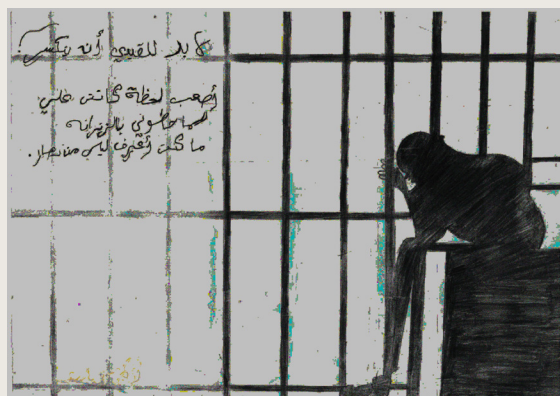 لا بد للقيد أن ينكسر!
أصعب لحظة كانت علي
لما حطوني بالزنزانة
ما كنت أعرف ليل من نهار.